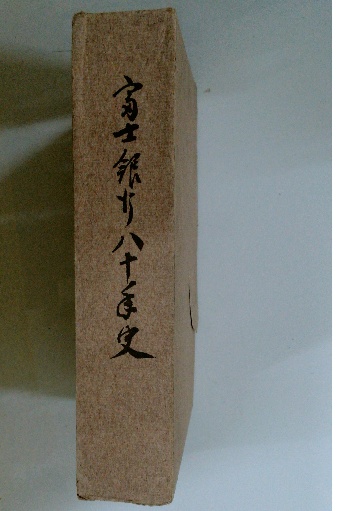 富士銀行八十年史